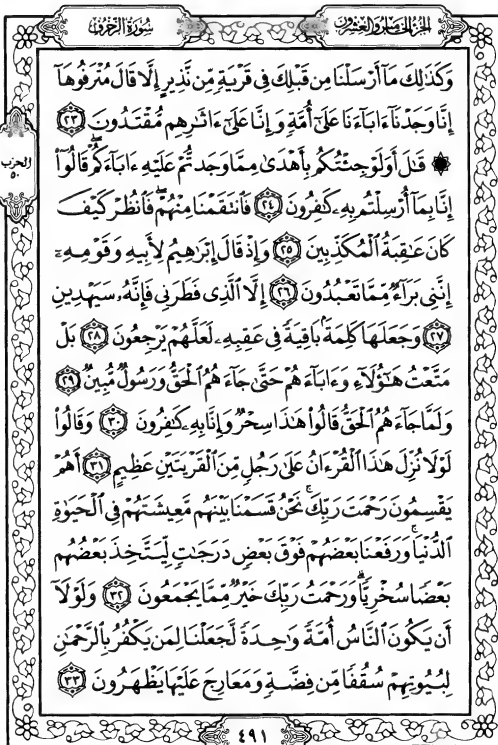 سُورَةُ الزُّخْرُفِ
الجُزءُ الخَامِسُ وَالعِشْرُونَ
وَكَذَٰلِكَ مَآ أَرْسَلْنَا مِن قَبْلِكَ فِي قَرْيَةٍ مِّن نَّذِيرٍ إِلَّا قَالَ مُتْرَفُوهَآ
إِنَّا وَجَدْنَآ ءَابَآءَنَا عَلَىٰٓ أُمَّةٍ وَإِنَّا عَلَىٰٓ ءَاثَٰرِهِم مُّقْتَدُونَ ٢٣
۞ قَٰلَ أَوَلَوْ جِئْتُكُم بِأَهْدَىٰ مِمَّا وَجَدتُّمْ عَلَيْهِ ءَابَآءَكُمْ ۖ قَالُوٓا۟
إِنَّا بِمَآ أُرْسِلْتُم بِهِۦ كَٰفِرُونَ ٢٤ فَٱنتَقَمْنَا مِنْهُمْ ۖ فَٱنظُرْ كَيْفَ
كَانَ عَٰقِبَةُ ٱلْمُكَذِّبِينَ ٢٥ وَإِذْ قَالَ إِبْرَٰهِيمُ لِأَبِيهِ وَقَوْمِهِۦٓ
إِنَّنِى بَرَآءٌ مِّمَّا تَعْبُدُونَ ٢٦ إِلَّا ٱلَّذِى فَطَرَنِى فَإِنَّهُۥ سَيَهْدِينِ
٢٧ وَجَعَلَهَا كَلِمَةًۢ بَاقِيَةً فِى عَقِبِهِۦ لَعَلَّهُمْ يَرْجِعُونَ ٢٨ بَلْ
مَتَّعْتُ هَٰٓؤُلَآءِ وَءَابَآءَهُمْ حَتَّىٰ جَآءَهُمُ ٱلْحَقُّ وَرَسُولٌ مُّبِينٌ ٢٩
وَلَمَّا جَآءَهُمُ ٱلْحَقُّ قَالُوا۟ هَٰذَا سِحْرٌ وَإِنَّا بِهِۦ كَٰفِرُونَ ٣٠ وَقَالُوا۟
لَوْلَا نُزِّلَ هَٰذَا ٱلْقُرْءَانُ عَلَىٰ رَجُلٍ مِّنَ ٱلْقَرْيَتَيْنِ عَظِيمٍ ٣١ أَهُمْ
يَقْسِمُونَ رَحْمَتَ رَبِّكَ ۚ نَحْنُ قَسَمْنَا بَيْنَهُم مَّعِيشَتَهُمْ فِى ٱلْحَيَوٰةِ
ٱلدُّنْيَا ۚ وَرَفَعْنَا بَعْضَهُمْ فَوْقَ بَعْضٍ دَرَجَٰتٍ لِّيَتَّخِذَ بَعْضُهُم
بَعْضًا سُخْرِيًّا ۗ وَرَحْمَتُ رَبِّكَ خَيْرٌ مِّمَّا يَجْمَعُونَ ٣٢ وَلَوْلَآ
أَن يَكُونَ ٱلنَّاسُ أُمَّةً وَٰحِدَةً لَّجَعَلْنَا لِمَن يَكْفُرُ بِٱلرَّحْمَٰنِ
لِبُيُوتِهِمْ سُقُفًا مِّن فِضَّةٍ وَمَعَارِجَ عَلَيْهَا يَظْهَرُونَ ٣٣
الحزب
٥٠
٤٩١